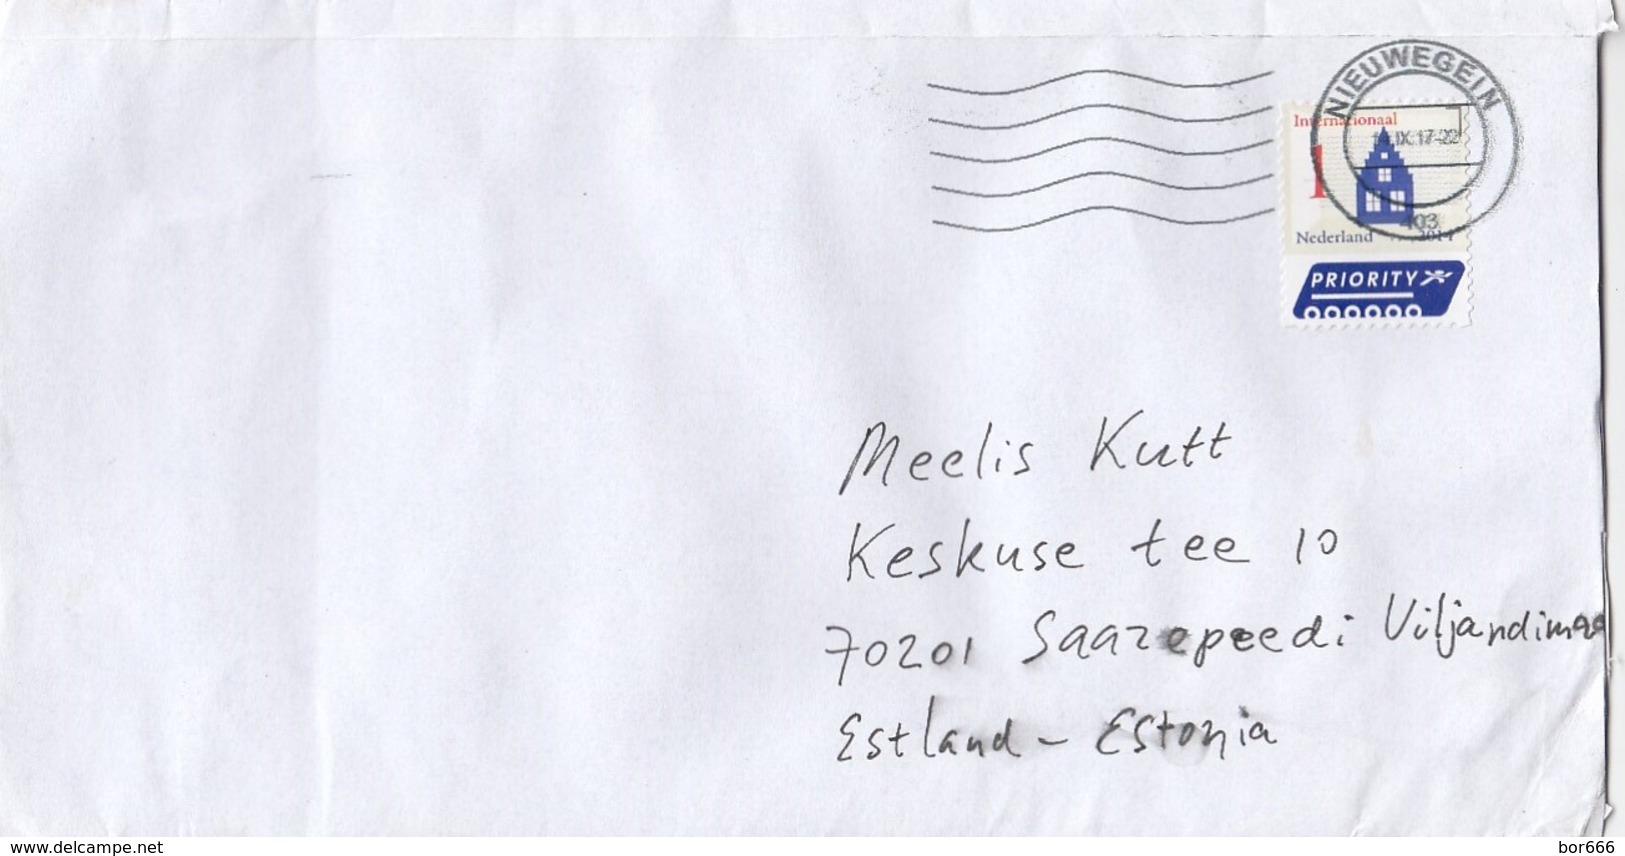 NIEUWEGEIN
Internationaal
.IX.17-22
1
403
Nederland 2014
PRIORITY
Meelis Kutt
Keskuse tee 10
70201 Saarepeedi Viljandimaa
Estland - Estonia
www.delcampe.net
bor666